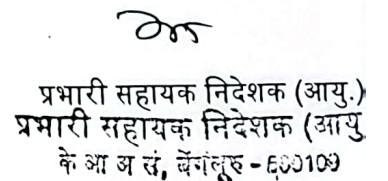 प्रभारी सहायक निदेशक (आयु.)
प्रभारी सहायक निदेशक (आयु
के आ अ सं, बेंगलुरु -